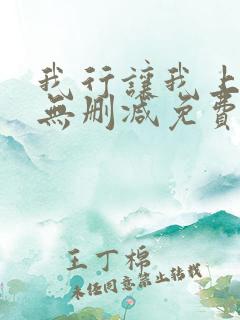 我行讓我上
無刪減免費
王丁棉
未经同意禁止转载